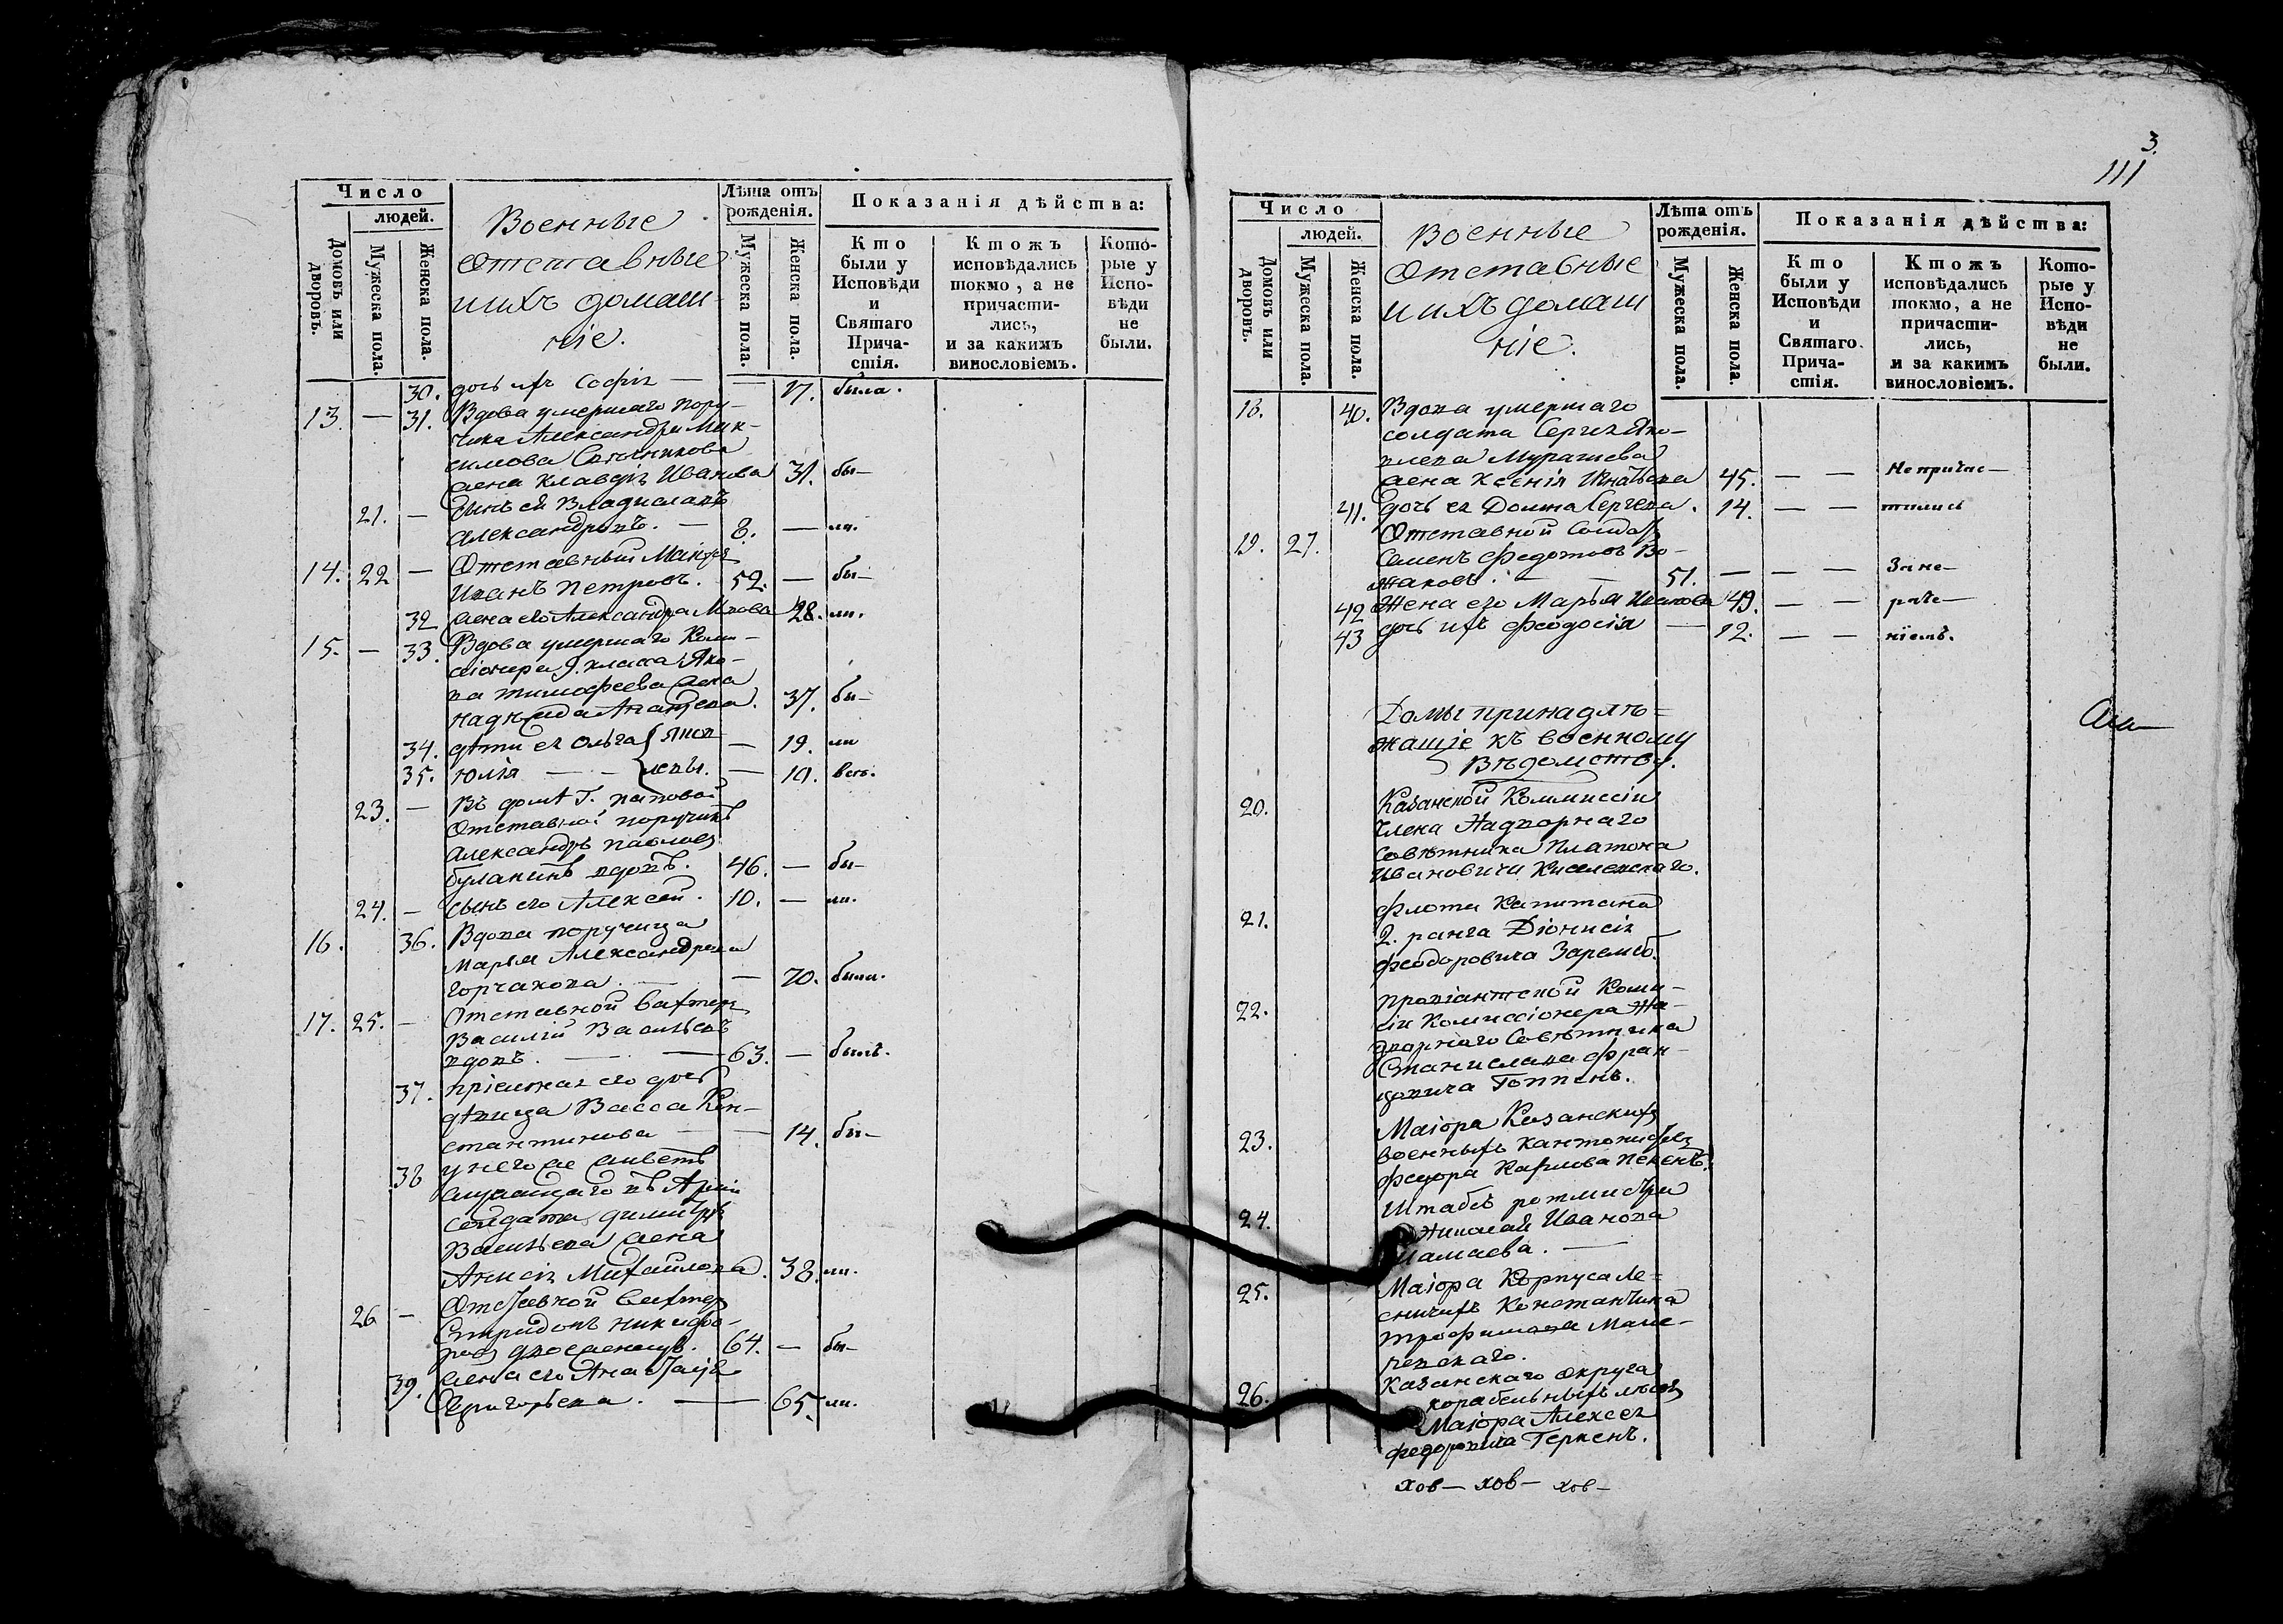 Число
людей.
Домовъ или дворовъ.
Мужеска пола.
Женска пола.
Военные
Отставные
и ихъ домаш-
ніе.
Лѣта отъ рожденія.
Мужеска пола.
Женска пола.
Показанія дѣйства:
Кто были у Исповѣди и Святаго Прича-стія.
Ктожъ исповѣдались токмо, а не причасти-лись, и за какимъ винословіемъ.
Кото-рые у Испо-вѣди не были.
30. дочь ихъ Софія — — 17. была.
13. — 31. Вдова умершаго пору-
чика Александра Мак-
симова
жена Клавдія Иванова 31. бы-
21. — Сынъ ея Владиславъ
Александровъ. — 8. — ли.
14. 22 — Отставный Маіоръ
Иванъ Петровъ. 52. — бы-
32 жена его Александра 28. ли.
15. — 33. Вдова умершаго Коми-
сіонера 9. класса Яко-
ва Тимофеева жена
Надежда 37. бы-
34. дѣти ея Ольга { Яков- — 19. ли
35. Юлія — — { левы. — 10. всѣ.
23. — Въ домѣ Г. Поповой
Отставной поручикъ
Александръ Павловъ
Буланинъ вдовъ. 46. — бы-
24. — сынъ его Алексей. 10. — ли.
16. 36. Вдова поручица
Марья Александрова
Горчакова. — 70. была.
17. 25. — Отставной Вахтеръ
Василій Васильевъ
вдовъ. — — 63. — былъ.
37. пріемная его дочь
дѣвица Васса Кон-
стантинова — — 14. бы-
38 у него же живетъ
служащаго въ Арміи
солдата Димитрія
Васильева жена
Анисія Михайлова. 38. ли.
26 — Отставной Вахтеръ
Спиридонъ Никифо-
ровъ двоеженецъ. 64. — бы-
39. жена его Анастасія
Григорьева. — 65. ли.
3.
111
Число
людей.
Домовъ или дворовъ.
Мужеска пола.
Женска пола.
Военные
Отставные
и ихъ домаш
ніе.
Лѣта отъ рожденія.
Мужеска пола.
Женска пола.
Показанія дѣйства:
Кто были у Исповѣди и Святаго Прича-стія.
Ктожъ исповѣдались токмо, а не причасти-лись, и за какимъ винословіемъ.
Кото-рые у Испо-вѣди не были.
18. 40. Вдова умершаго
солдата Сергея Яко-
влева Мурашева
жена Ксенія Игнатьева 45. — — Не причас-
41. дочь ея Домна Сергеева. 14. — — тились
19. 27. Отставной Солдатъ
Семенъ Федотовъ Во-
жаковъ. — — 51. — — — За не-
42 Жена его Марья Иванова 49. — — раче-
43 дочь ихъ Феодосія — 12. — — ніемъ.
Домы принадлѣ=
жащіе къ военному
Вѣдомству.
20. Казанской Коммиссіи
Члена Надворнаго
Совѣтника Платона
Ивановича Киселевскаго.
21. Флота Капитана
2. ранга Діонисія
Феодоровича
22. Провіантской Коми-
сіи Комиссіонера На-
дворнаго Совѣтника
Станислава Фран-
цовича Гоппенъ.
23. Маіора Казанскихъ
военныхъ Кантонистовъ
Федора Карлова Пекенъ.
24. Штабсъ ротмистра
Николая Иванова
Мамаева. —
25. Маіора Корпуса Ле=
сничихъ Константина
Трофимова
26. Казанскаго округа
корабельныхъ лѣсовъ
Маіора Алексея
Федоровича Геркенъ.
хов— хов— хов—